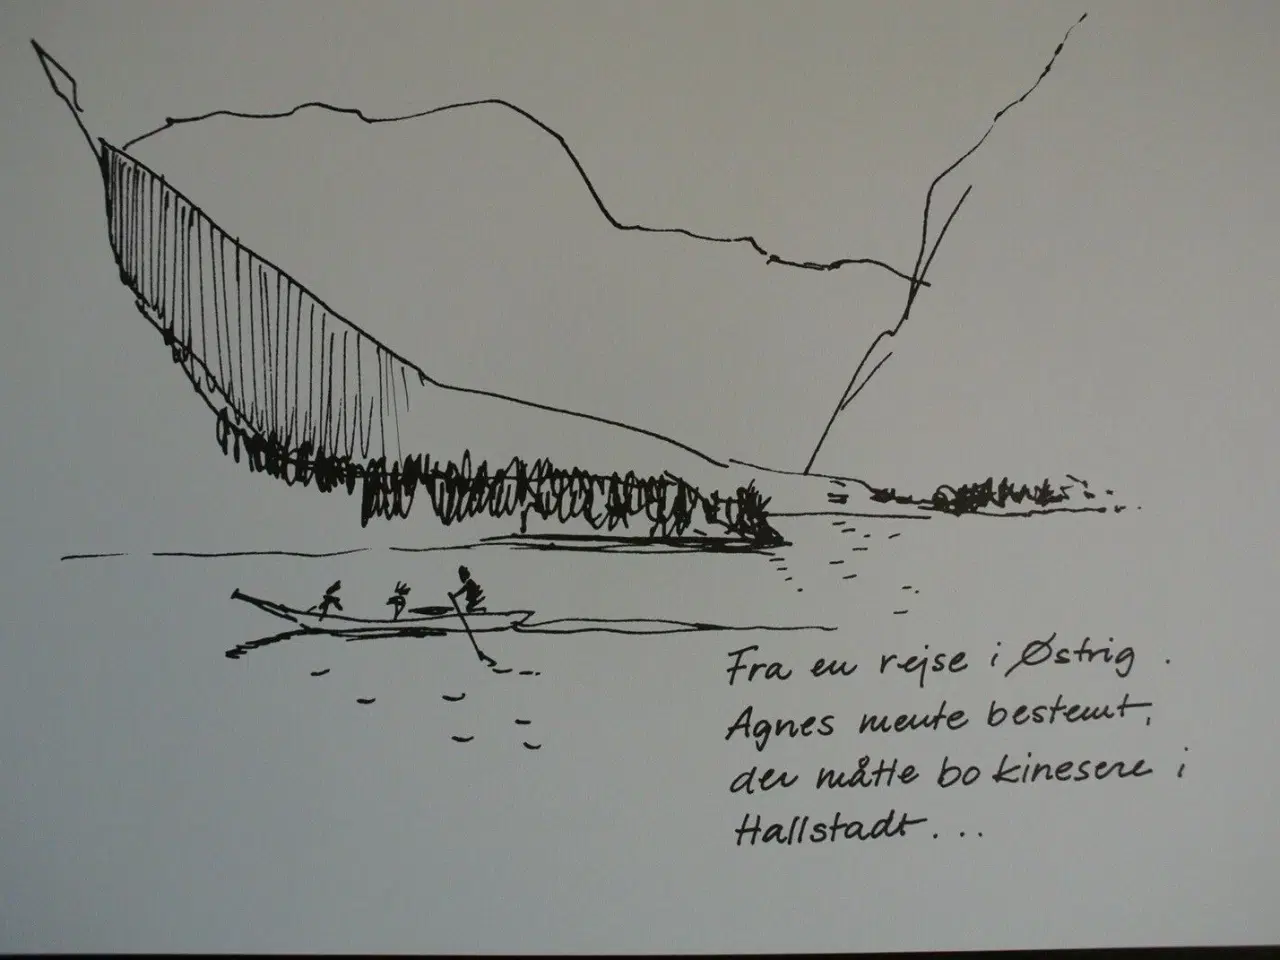 Fra en rejse i Østrig.
Agnes mente bestemt,
der måtte bo kinesere i
Hallstadt...